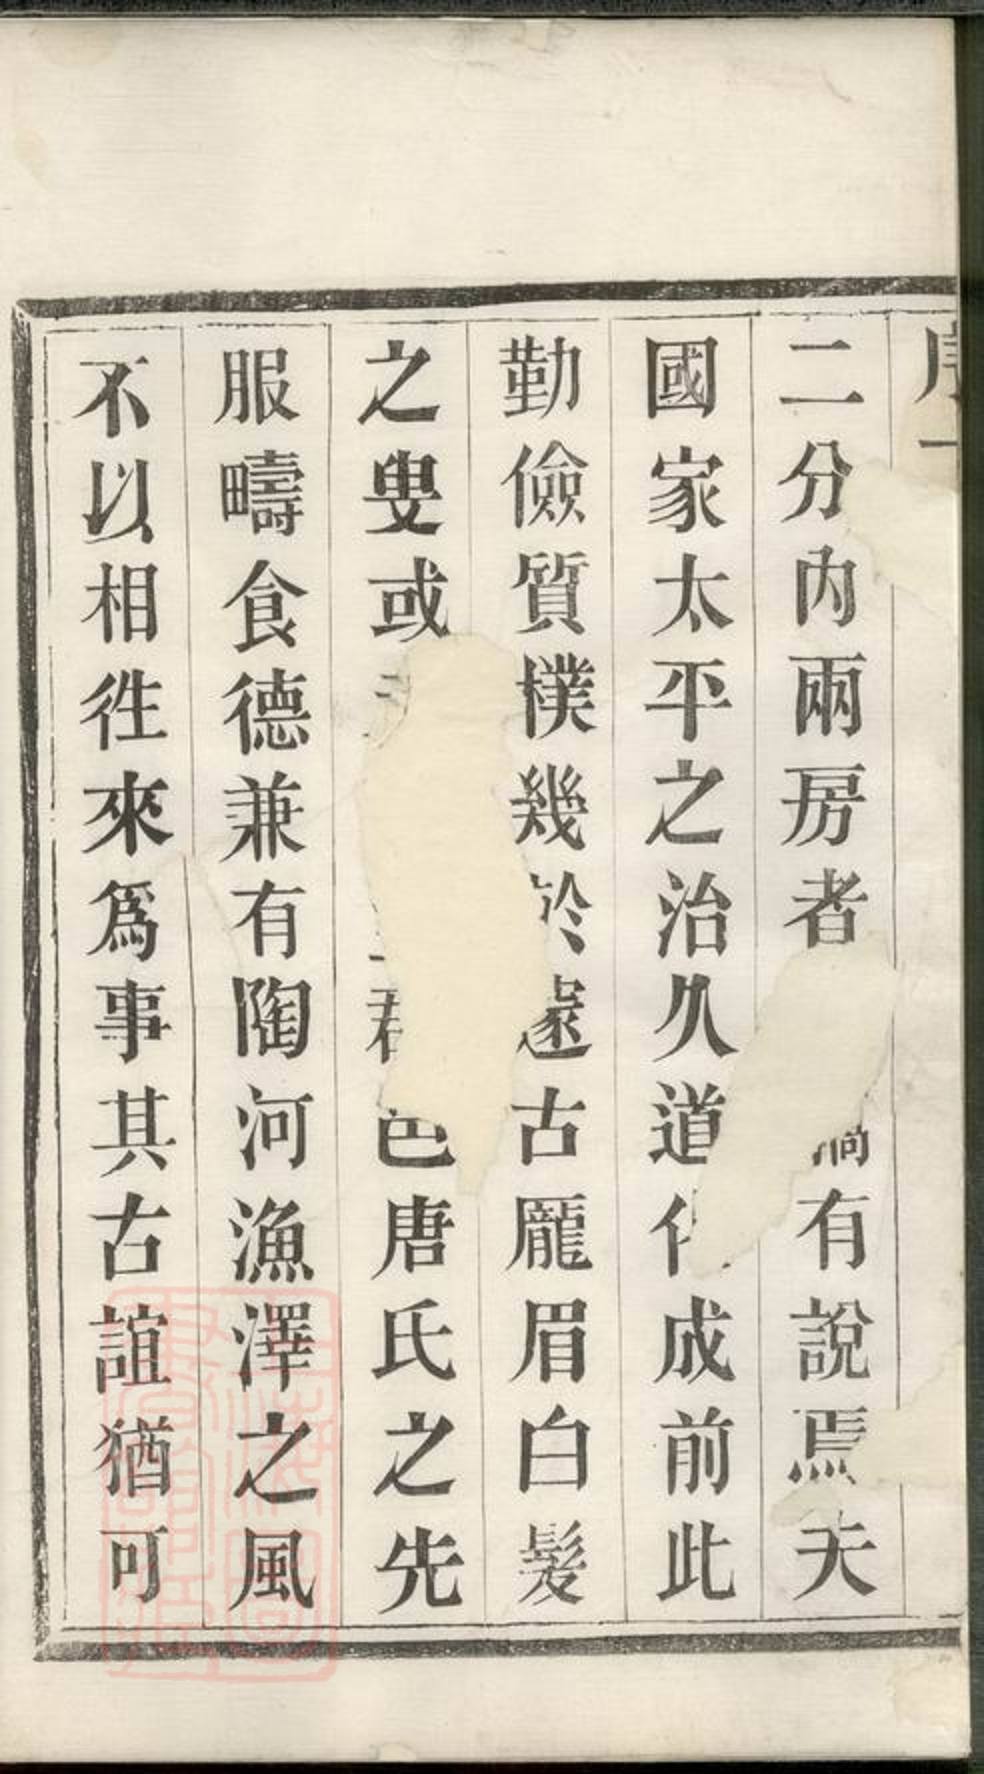 序
二分內兩房者有說焉夫
國家太平之治久道化成前此
勤儉質樸幾於遠古龐眉白髮
之叟或君邑唐氏之先
服疇食德兼有陶河漁澤之風
不以相徃來爲事其古誼猶可